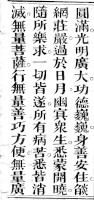 圓滿光明廣大功德巍巍身善安住燄
網莊嚴過於日月幽冥衆生悉蒙開曉
隨所樂求一切皆遂所有病苦悉皆消
滅無量菩薩行無量善巧方便無量廣